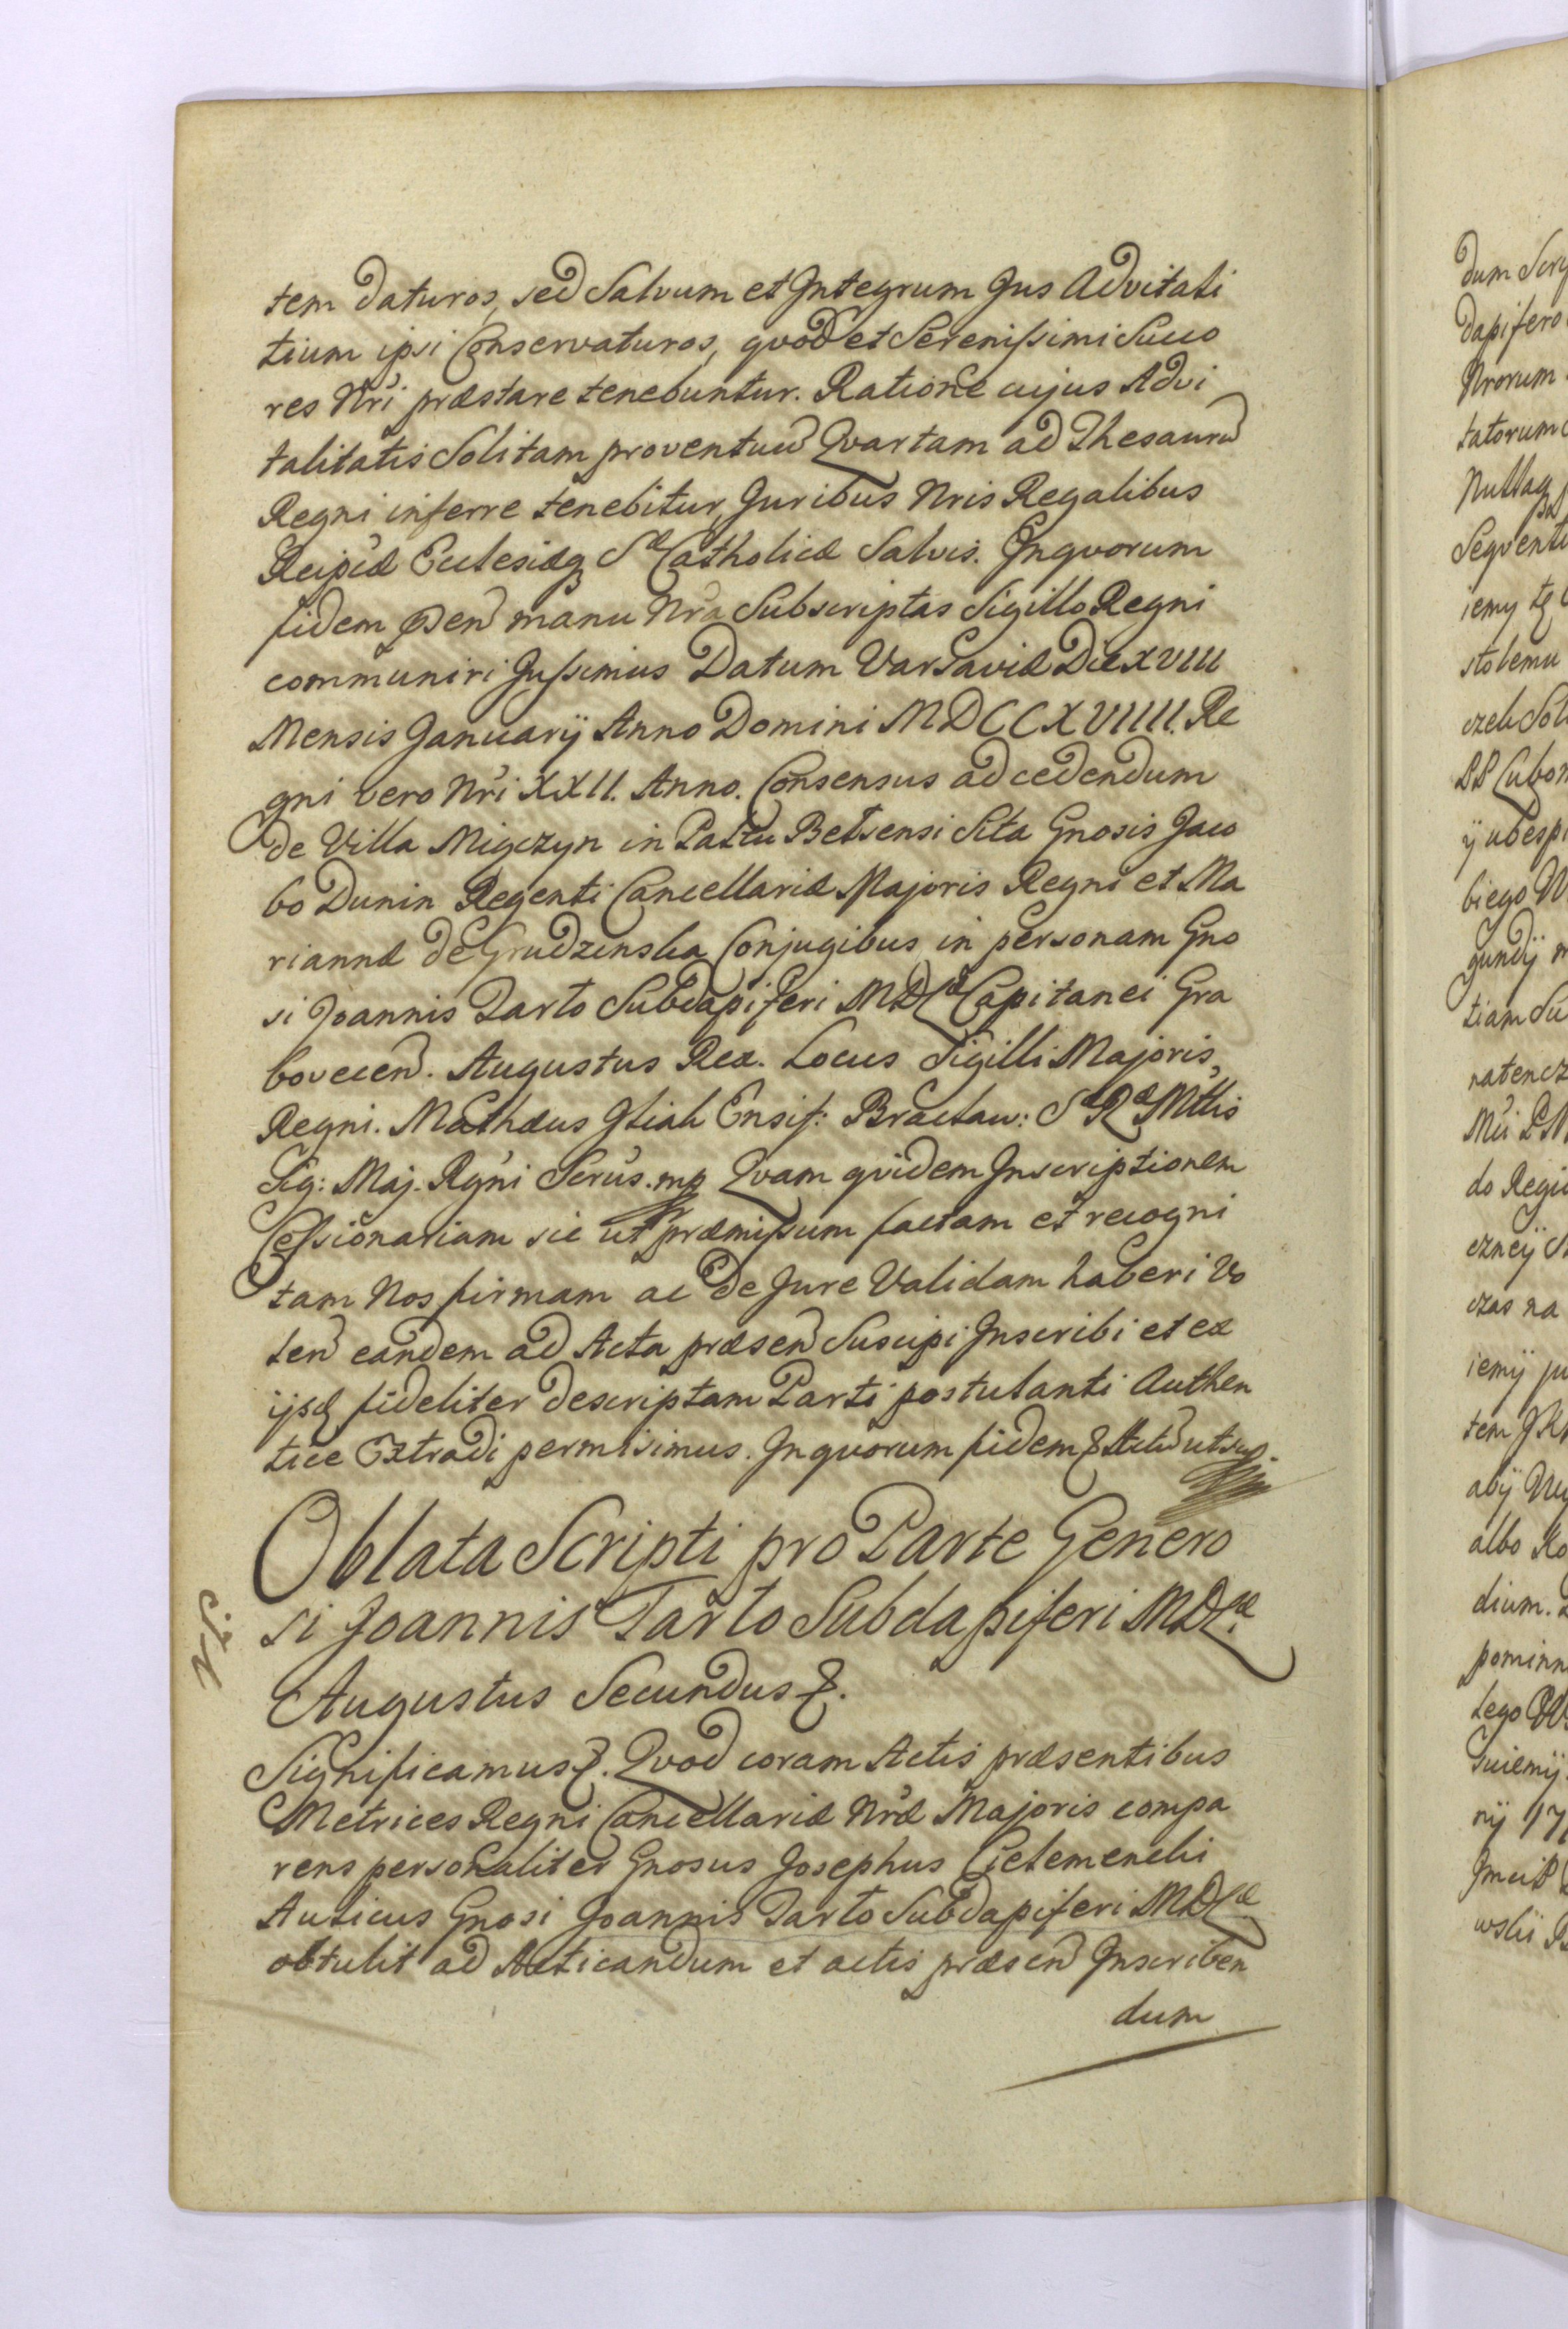 tem daturos, sed Salvum et Integrum Jus Advitali
tium ipsi Conservaturos, qvod et Serenissimi Succo
res Nri præstare tenebuntur. Ratione cujus Advi
talitatis Solitam proventuu Qvartam ad Thesauru
Regni inferre tenebitur, Juribus Nris Regalibus
Reipcæ Ecclesiæq Sæ Catholicæ Salvis. In qvorum
fidem pden manu Nra Subscriptas Sigillo Regni
communiri Jussimus Datum Varsaviæ Die XVIII
Mensis Januarij Anno Domini MDCCXVIIII. Re
gni vero Nri XXII. Anno. Consensus ad cedendum
de Villa Migczyn in Pattu Belsensi Sita Gnosis Jaco
bo Dunin Regenti Cancellariæ Majoris Regni et Ma
riannæ de Grudzinska Conjugibus in personam Gno
si Joannis Tarło Subdapiferi MDLæ Capitanei Gra
bovecen. Augustus Rex. Locus Sigilli Majoris,
Regni. Mathæus Iliak Ensif: Bracław: Sæ Ræ Mttis
Sig: Maj. Rgni Scrus. mp Qvam qvidem Inscriptionem
Cessionariam sic ut præmissum factam et recogni
tam Nos firmam ac de Jure Validam haberi Vo
len eandem ad Acta præsen Suscipi Inscribi et ex
ijsd fideliter descriptam Parti postulanti Authen
tice Extradi permisimus. In qvorum fidem & Actu ut sup.
Oblata Scripti pro Parte Genero
si Joannis Tarło Subdapiferi MDLæ.
Augustus Secundus &.
Significamus &. Qvod coram Actis præsentibus
Metrices Regni Cancellariæ Nræ Majoris compa
rens personaliter Gnosus Josephus Cielemencki
Aulicus Gnosi Joannis Tarło Subdapiferi MDLæ
obtulit ad Acticandum et actis præsen Inscriben
dum